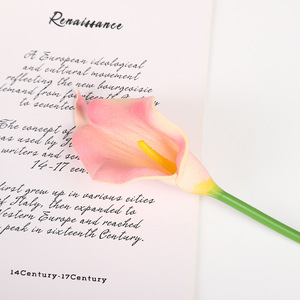 Renaissance
A European ideological
and cultural movement
reflecting the new bourgeoisie
demand from fourteenth
to sevente
The concept of
was used by It
writers and sc
14-17 cen
first grew up in various cities
f Italy, then expanded to
Western Europe and reached
peak in sixteenth Century.
14Century-17Century